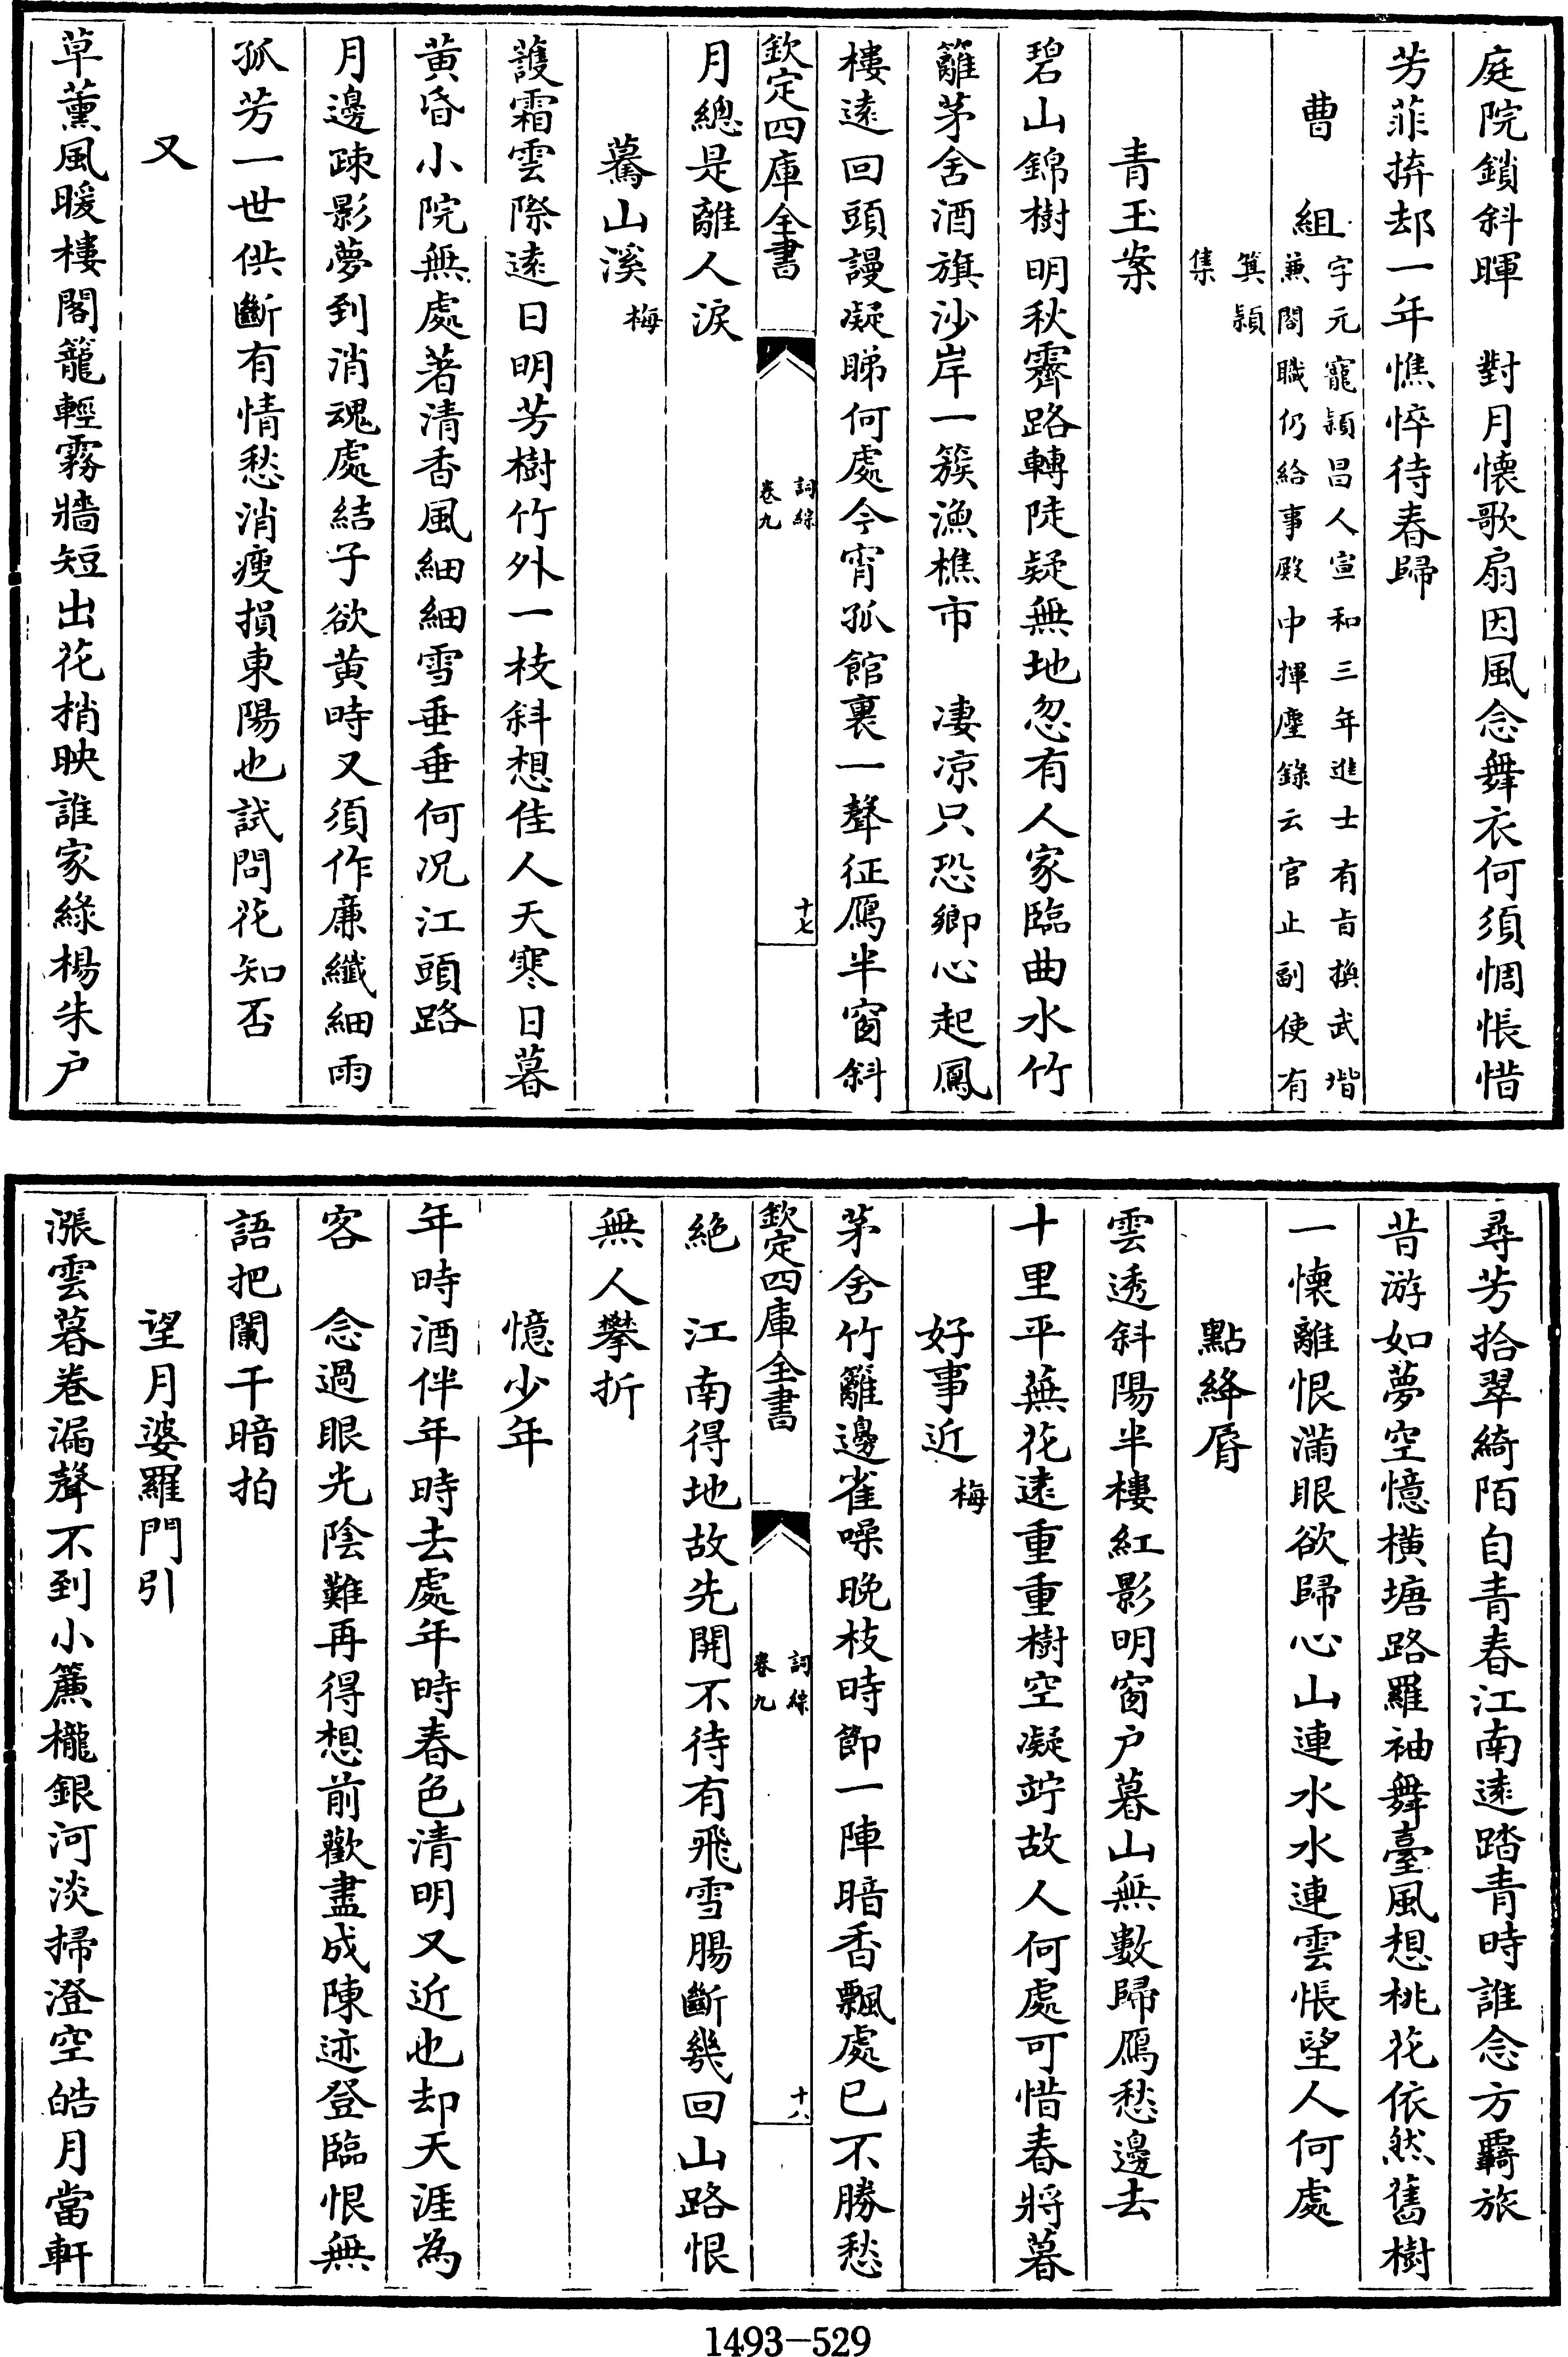 庭院鎖斜暉　對月懐歌扇因風念舞衣何須惆悵惜
芳菲拚却一年憔悴待春歸
曹　組字元寵潁昌人宣和三年進士有旨換武堦
兼閤職仍給事殿中揮麈錄云官止副使有
箕潁
集
青玉案
碧山錦樹明秋霽路轉陡疑無地忽有人家臨曲水竹
籬茅舍酒旗沙岸一簇漁樵市　凄凉只恐鄉心起鳳
樓逺回頭謾凝睇何處今宵孤館裏一聲征鴈半窗斜
欽定四庫全書
詞綜
卷九
十七
月總是離人淚
驀山溪梅
護霜雲際逺日明芳樹竹外一枝斜想佳人天寒日暮
黄昏小院無處著清香風細細雪垂垂何况江頭路
月邊疎影夢到消魂處結子欲黄時又須作廉纖細雨
孤芳一世供斷有情愁消瘦損東陽也試問花知否
又
草薰風暖樓閣籠輕霧牆短出花梢映誰家綠楊朱户
尋芳拾翠綺陌自青春江南逺踏青時誰念方覊旅
昔游如夢空憶橫塘路羅袖舞臺風想桃花依然舊樹
一懐離恨滿眼欲歸心山連水水連雲悵望人何處
點絳脣
雲透斜陽半樓紅影明窗户暮山無數歸鴈愁邊去
十里平蕪花逺重重樹空凝竚故人何處可惜春將暮
好事近梅
茅舍竹籬邊雀噪晩枝時節一陣暗香飄處已不勝愁
欽定四庫全書
詞綜
卷九
十八
絶　江南得地故先開不待有飛雪腸斷幾回山路恨
無人攀折
憶少年
年時酒伴年時去處年時春色清明又近也却天涯為
客　念過眼光陰難再得想前歡盡成陳迹登臨恨無
語把闌干暗拍
望月婆羅門引
漲雲暮卷漏聲不到小簾櫳銀河淡掃澄空皓月當軒
1493-529